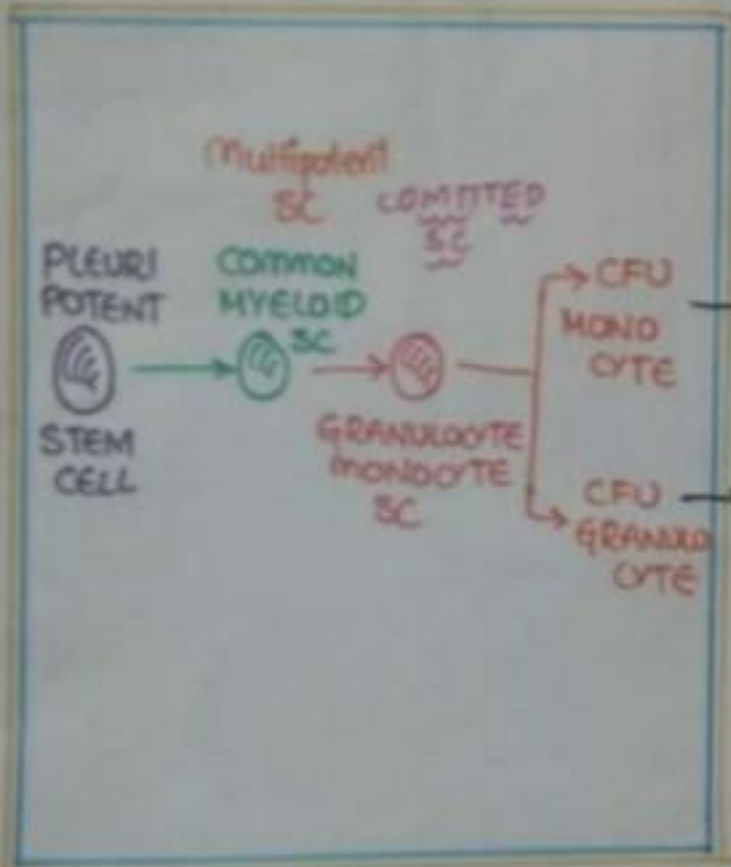 Multipotent
SC
COMITTED
SC
PLEURI
POTENT
STEM
CELL
COMMON
MYELOID
SC
GRANULOCYTE
MONOCYTE
SC
CFU
MONO
CYTE
CFU
GRANULO
CYTE